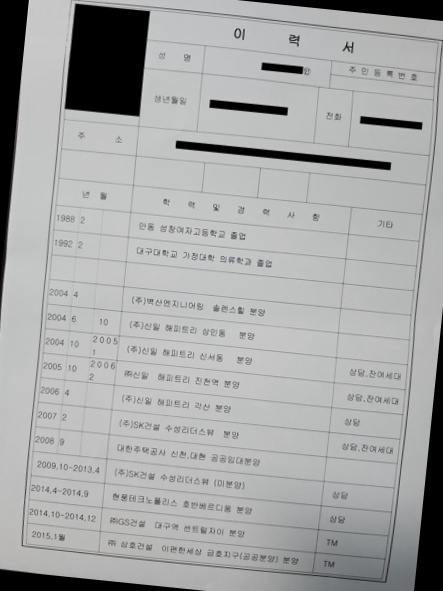 이 력 서
성 명 ㊞ 주 민 등 록 번 호
생년월일 전화
주 소
년 월 학 력 및 경 력 사 항 기타
1988 2 안동 성창여자고등학교 졸업
1992 2 대구대학교 가정대학 의류학과 졸업
2004 4 (주)벽산엔지니어링 솔렌스힐 분양
2004 6 10 (주)신일 해피트리 상인동 분양
2004 10 2005 1 (주)신일 해피트리 신서동 분양 상담,잔여세대
2005 10 2006 2 ㈜신일 해피트리 진천역 분양 상담,잔여세대
2006 4 (주)신일 해피트리 각산 분양 상담
2007 2 (주)SK건설 수성리더스뷰 분양 상담,잔여세대
2008 9 대한주택공사 신천,대현 공공임대분양
2009.10~2013.4 (주)SK건설 수성리더스뷰 (미분양) 상담
2014.4~2014.9 현풍테크노폴리스 호반베르디움 분양 상담
2014.10~2014.12 ㈜GS건설 대구역 센트럴자이 분양 TM
2015.1월 ㈜ 삼호건설 이편한세상 금호지구(공공분양) 분양 TM